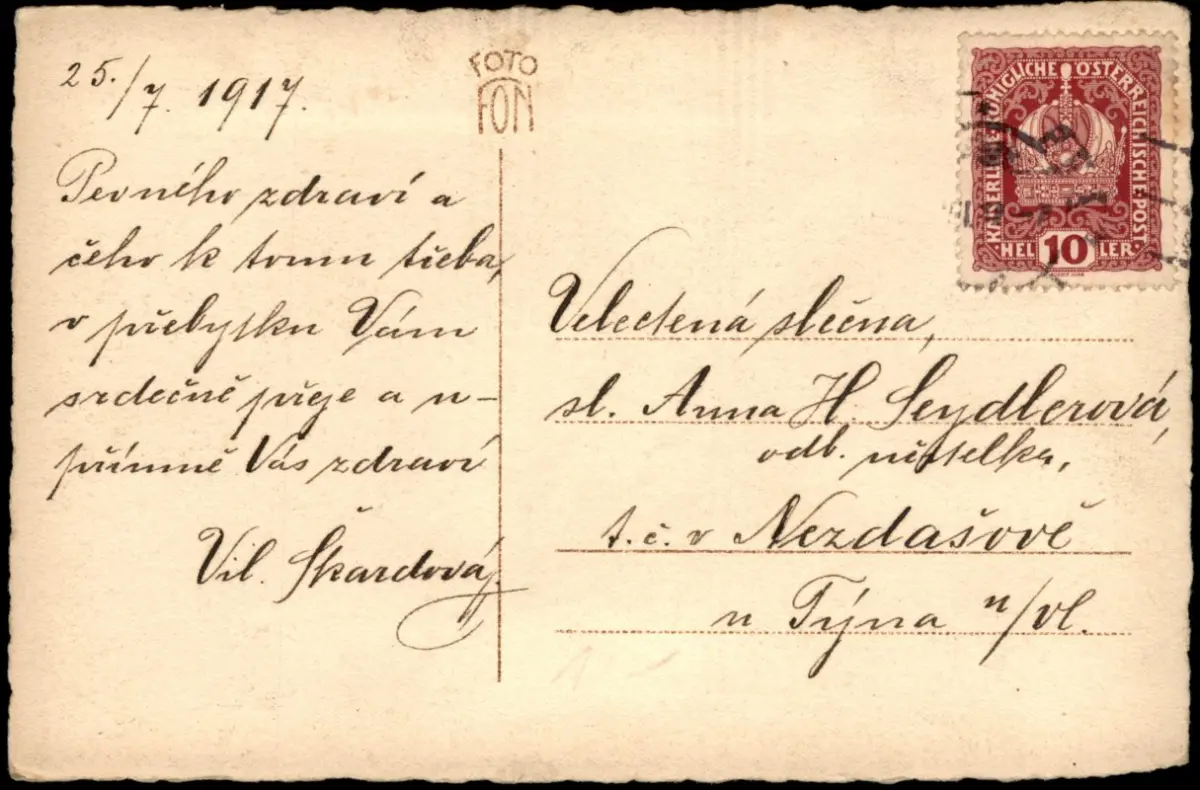 25./7. 1917.
Pevného zdraví a
čeho k tomu třeba,
v přebytku Vám
srdečně přeje a u-
přímně Vás zdraví
Vil. Škardová.
FOTO
FON
KAISERLICHE KÖNIGLICHE ÖSTERREICHISCHE POST
HELLER
10
Velectená slečna,
sl. Anna H. Seydlerová,
odb. učitelka,
t. č. v Nezdašově
u Týna n/Vl.